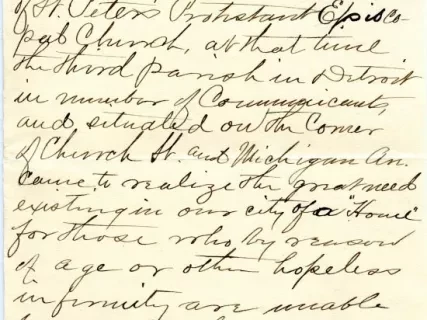 of St. Peter's Protestant Episco-
pal Church, at that time
the third parish in Detroit
in number of Communicants,
and situated on the Corner
of Church St. and Michigan Av.
came to realize the great need
existing in our city of a "Home"
for those who by reason
of age or other hopeless
infirmity are unable